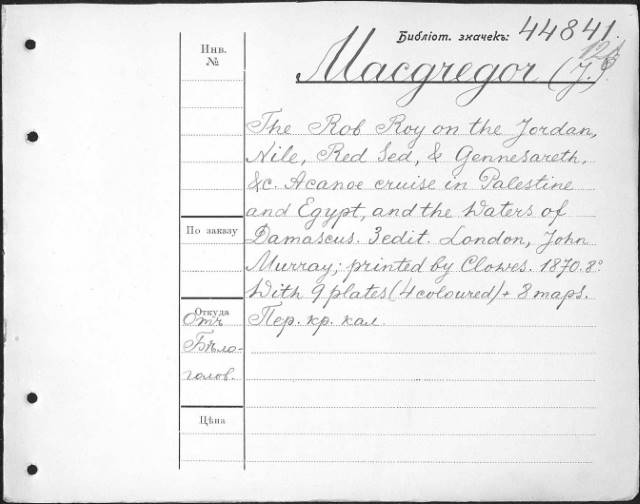 Библіот. значекъ: 44841.
126
Инв. №
Macgregor (J.).
The Rob Roy on the Jordan,
Nile, Red Sed, & Gennesareth,
&c. Acanoe cruise in Palestine
and Egypt, and the Waters of
По заказу
Damascus. 3edit. London, John
Murray; printed by Clowes. 1870. 8°.
With 9 plates (4 coloured) + 8 maps.
Откуда
Отъ
Бѣло-
голов.
Пер. кр. кал.
Цѣна